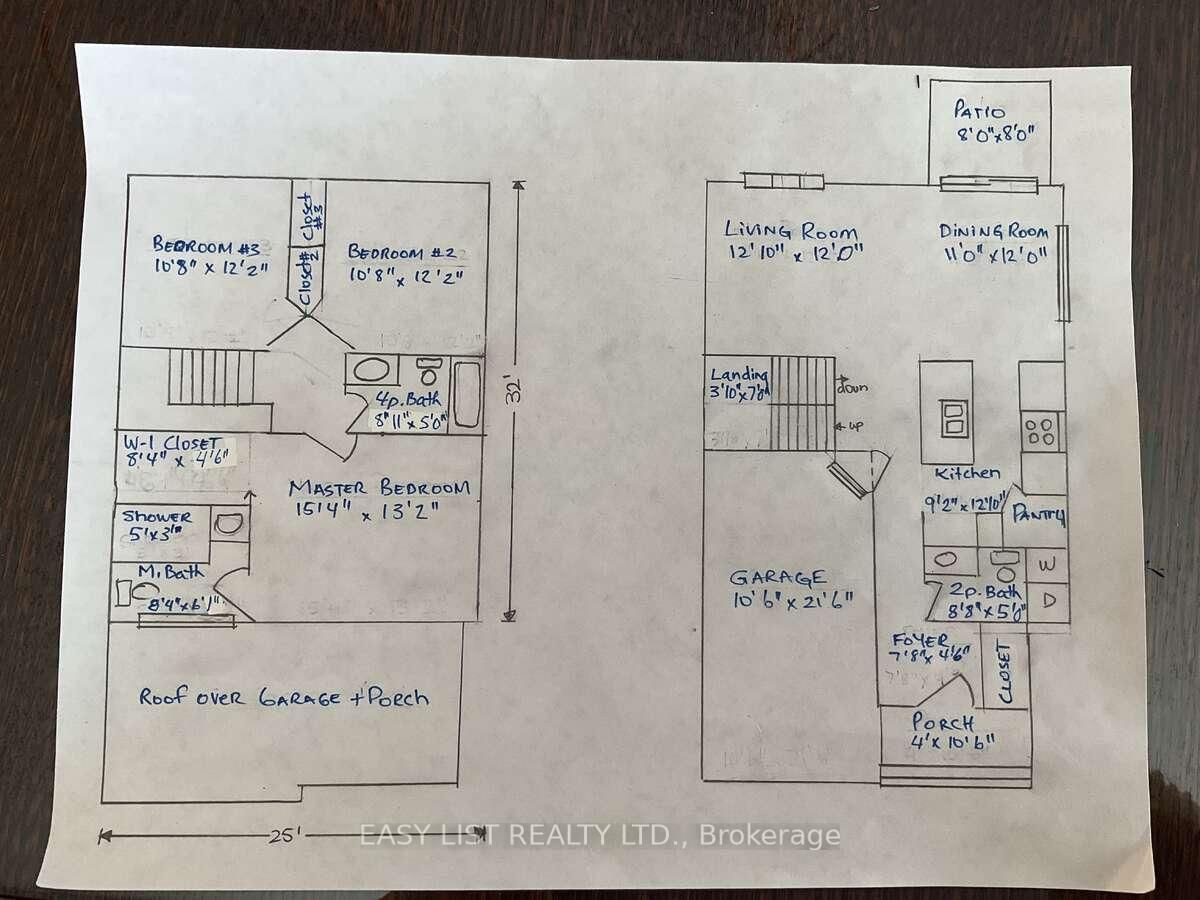 BEDROOM #3
10'8" x 12'2"
Closet #3
Closet #2
BEDROOM #2
10'8" x 12'2"
4p. Bath
8'11" x 5'0"
32'
W-I CLOSET
8'4" x 4'6"
MASTER BEDROOM
15'4" x 13'2"
SHOWER
5'x3'
M. Bath
8'4" x 6'1"
ROOF OVER GARAGE + PORCH
25'
PATIO
8'0" x 8'0"
LIVING ROOM
12'10" x 12'0"
DINING ROOM
11'0" x 12'0"
Landing
3'10" x 7'0"
down
up
Kitchen
9'2" x 12'10"
PANTRY
GARAGE
10'6" x 21'6"
W
D
2p. Bath
8'8" x 5'0"
FOYER
7'8" x 4'6"
CLOSET
PORCH
4' x 10'6"
EASY LIST REALTY LTD., Brokerage